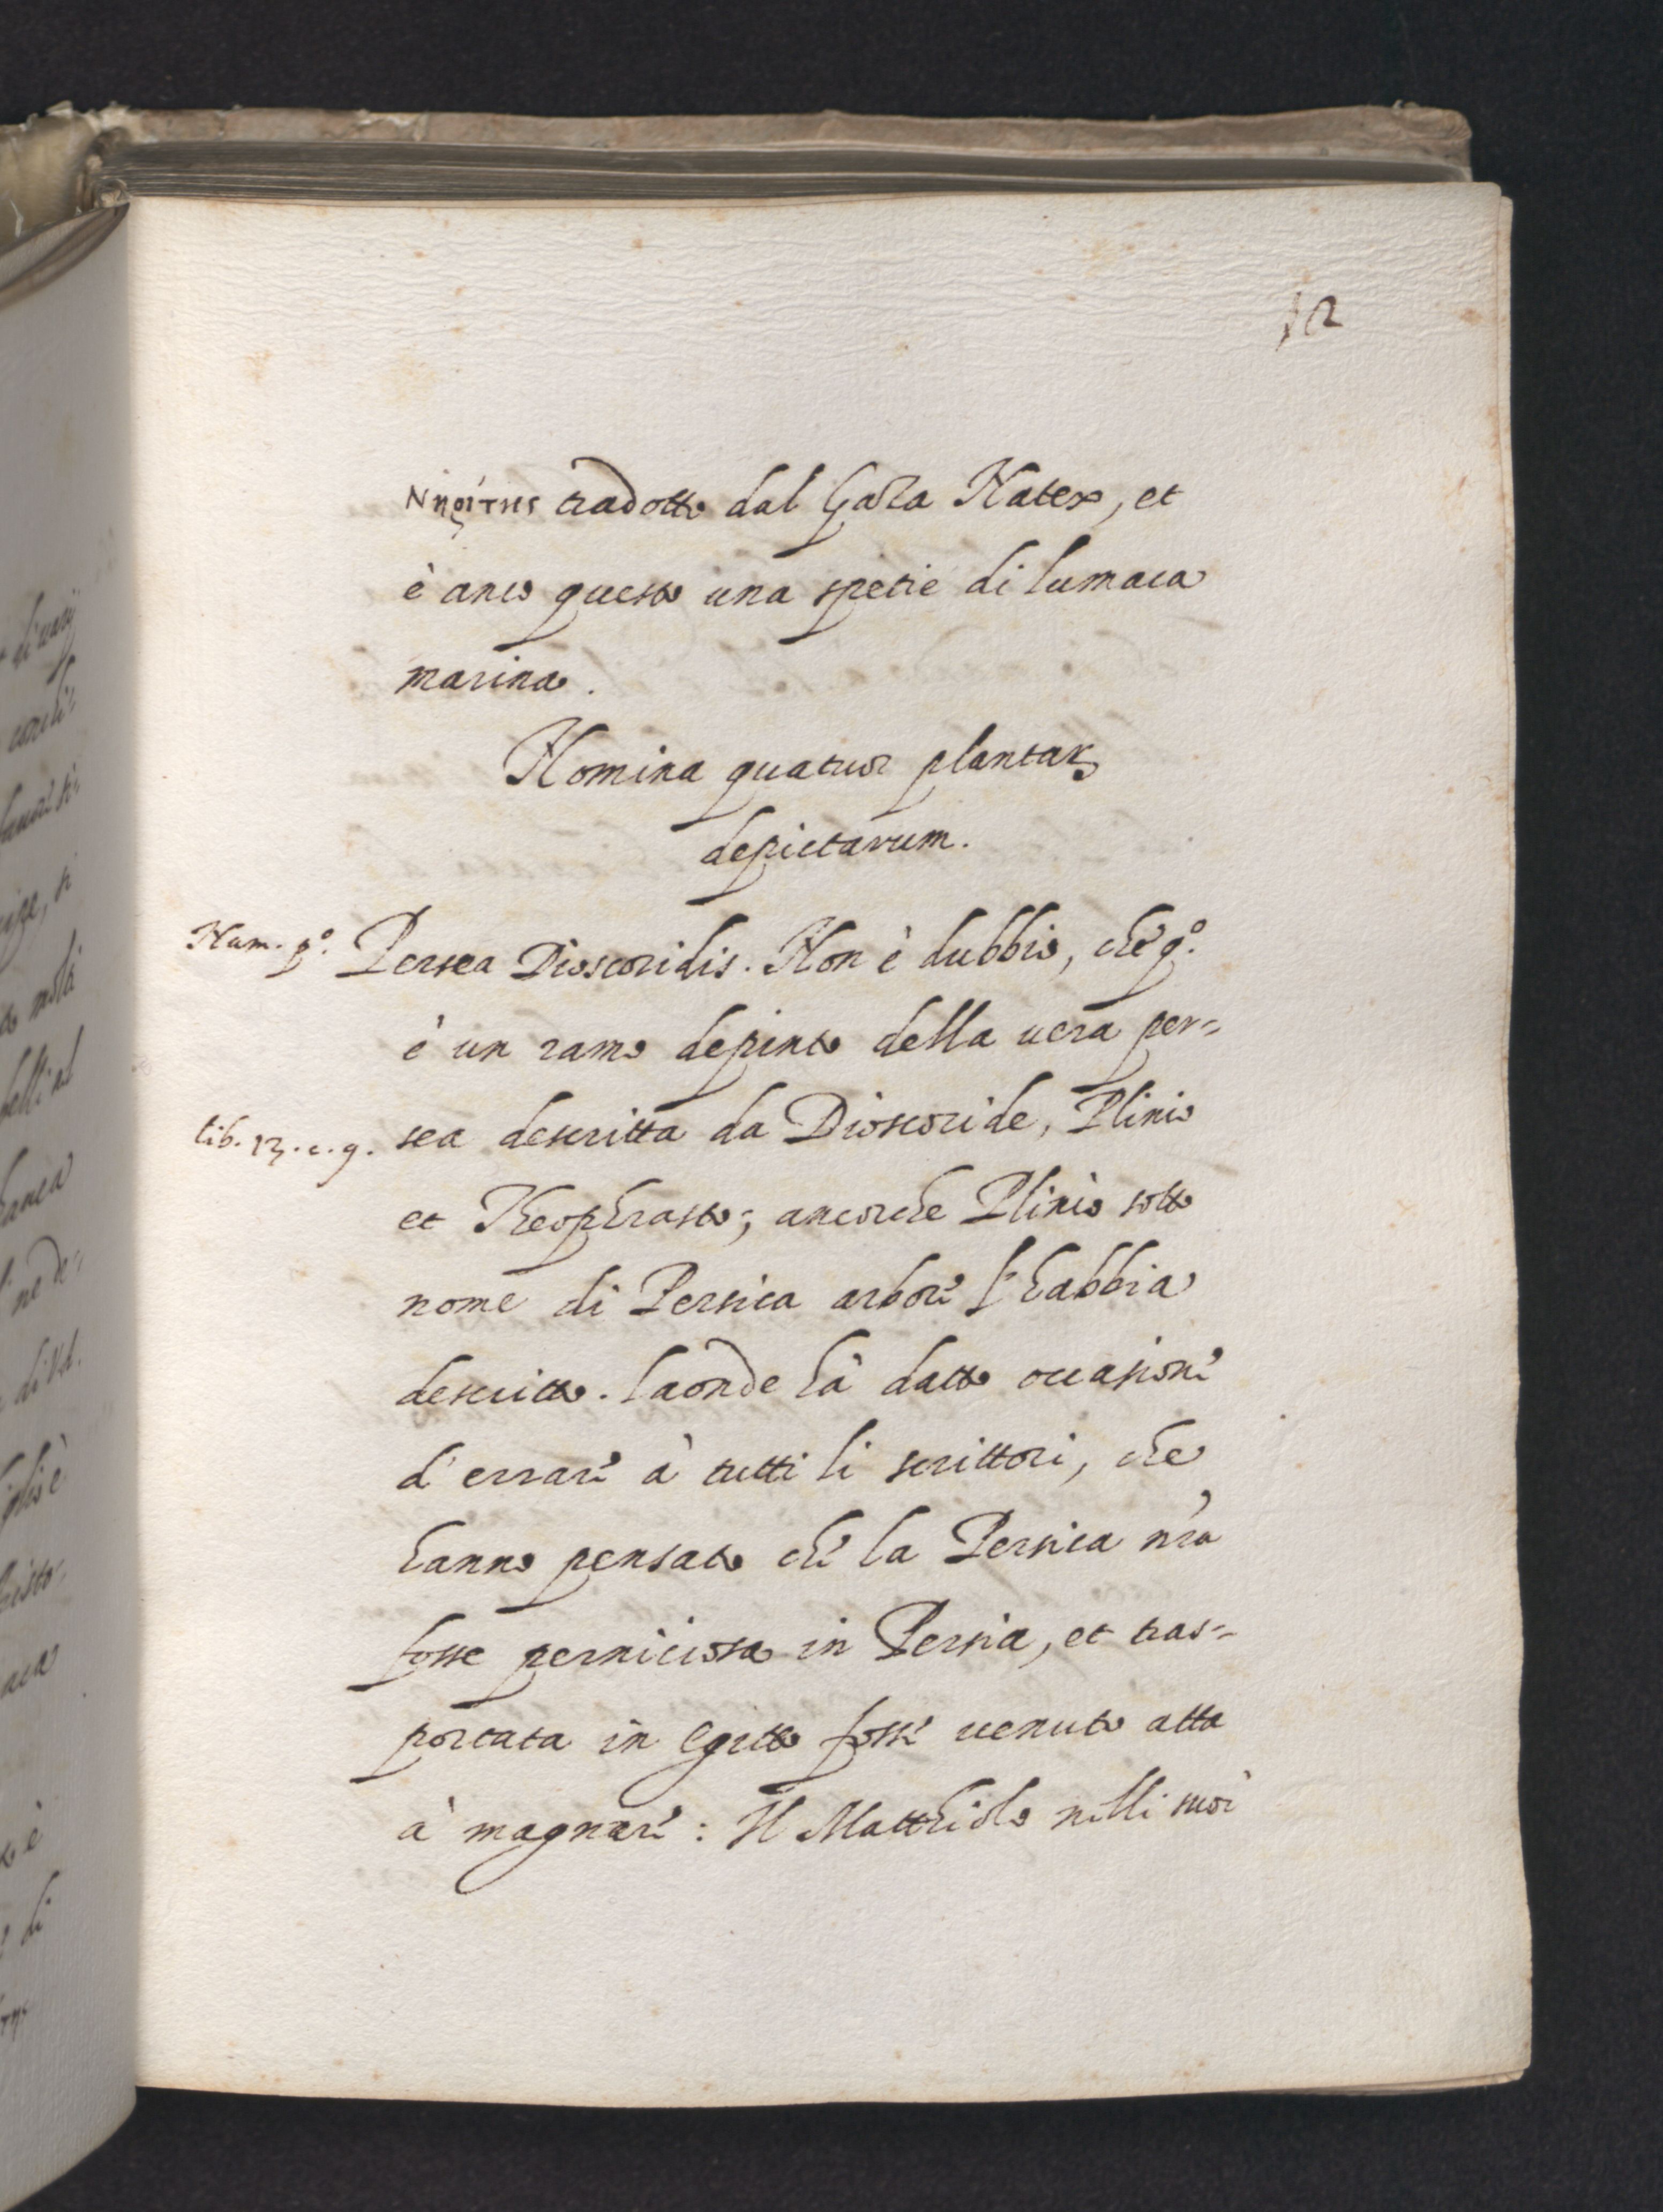 12
Νηρίτης tradotto dal Gaza Natex, et
è anco questo una spetie di lumaca
marina.
Nomina quatuor plantarꝝ
depictarum.
Num. p.º Persea Dioscoridis. Non è dubbio, che q.º
è un ramo depinto della uera per-
lib. 13. c. 9. sea descritta da Dioscoride, Plinio
et Theophrasto; ancorche Plinio sotto
nome di Persica arbore l'habbia
descritto. laonde hà datto occasione
d'errare à tutti li scrittori, che
hanno pensato che la Persica nrã
fosse perniciosa in Persia, et tras-
portata in Egitto fosse uenuta atta
à magnare: Il Matthiolo nelli suoi